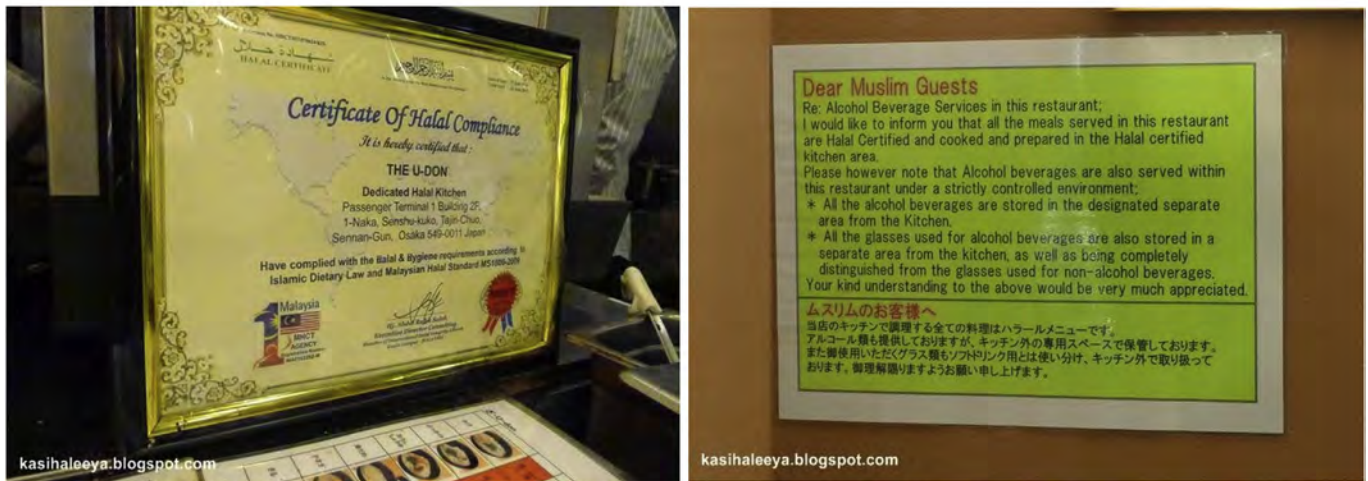 شهادة حلال
HALAL CERTIFICATE
Certificate Of Halal Compliance
It is hereby certified that :
THE U-DON
Dedicated Halal Kitchen
Passenger Terminal 1 Building 2F,
1-Naka, Senshu-kuko, Tajiri-Chuo,
Sennan-Gun, Osaka 549-0011 Japan
Have complied with the Halal & Hygiene requirements according to
Islamic Dietary Law and Malaysian Halal Standard MS1500-2009
Malaysia
MHCT
AGENCY
Executive Director Consulting
kasihaleeya.blogspot.com
Dear Muslim Guests
Re: Alcohol Beverage Services in this restaurant;
I would like to inform you that all the meals served in this restaurant
are Halal Certified and cooked and prepared in the Halal certified
kitchen area.
Please however note that Alcohol beverages are also served within
this restaurant under a strictly controlled environment;
* All the alcohol beverages are stored in the designated separate
area from the Kitchen.
* All the glasses used for alcohol beverages are also stored in a
separate area from the kitchen, as well as being completely
distinguished from the glasses used for non-alcohol beverages.
Your kind understanding to the above would be very much appreciated.
ムスリムのお客様へ
当店のキッチンで調理する全ての料理はハラールメニューです。
アルコール類も提供しておりますが、キッチン外の専用スペースで保管しております。
また御使用いただくグラス類もソフトドリンク用とは使い分け、キッチン外で取り扱って
おります。御理解賜りますようお願い申し上げます。
kasihaleeya.blogspot.com